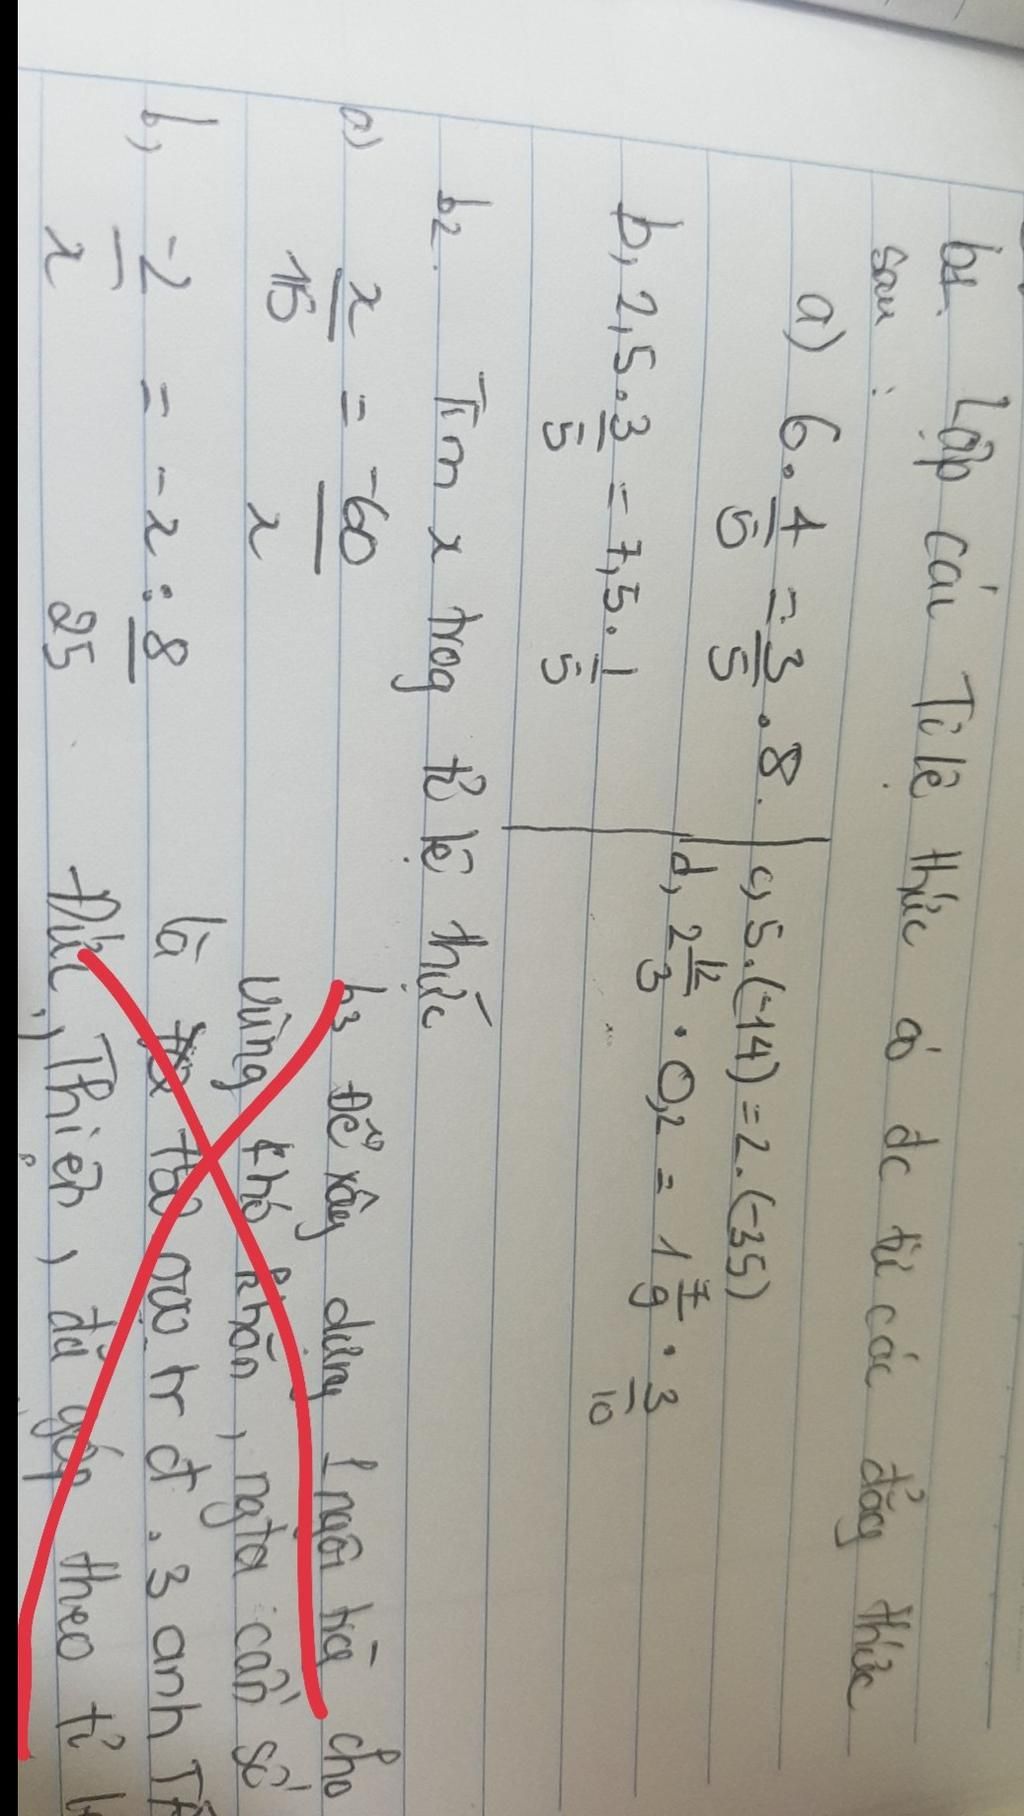 b1. Lập các Tỉ lệ thức có đc từ các đẳg thức
sau :
a) 6 . 4/5 = 3/5 . 8.
b, 2,5 . 3/5 = 7,5 . 1/5
c, 5.(-14) = 2.(-35)
d, 2 12/3 . 0,2 = 1 7/9 . 3/10
b2. Tìm x trog tỉ lệ thức
a) x/15 = -60/x
b, -2/x = -x : 8/25
b3 Để xây dựng 1 ngôi nhà cho
vùng khó khăn, ngta cần số
là 000 tr đ. 3 anh
Đức, Thiện, đã góp theo tỉ